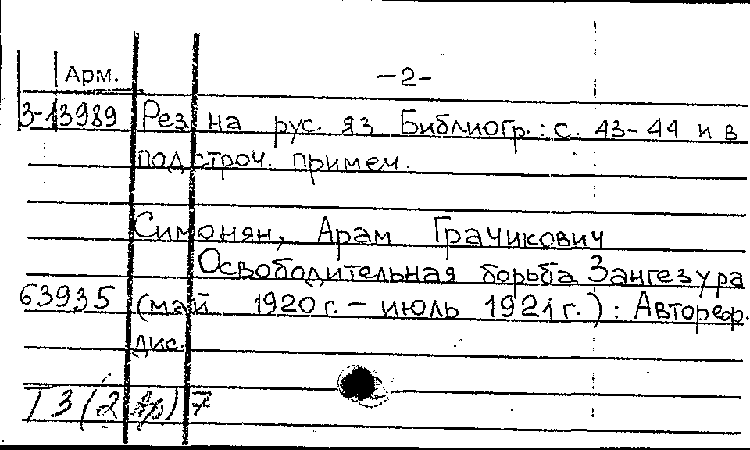 Арм. -2-
3-13989 Рез на рус. яз Библиогр.: с. 43-44 и в
подстроч. примеч.
Симонян, Арам Грачикович
Освободительная борьба Зангезура
63935 (май 1920г. - июль 1921г.): Автореф.
дис.
Т3(2Ар)7